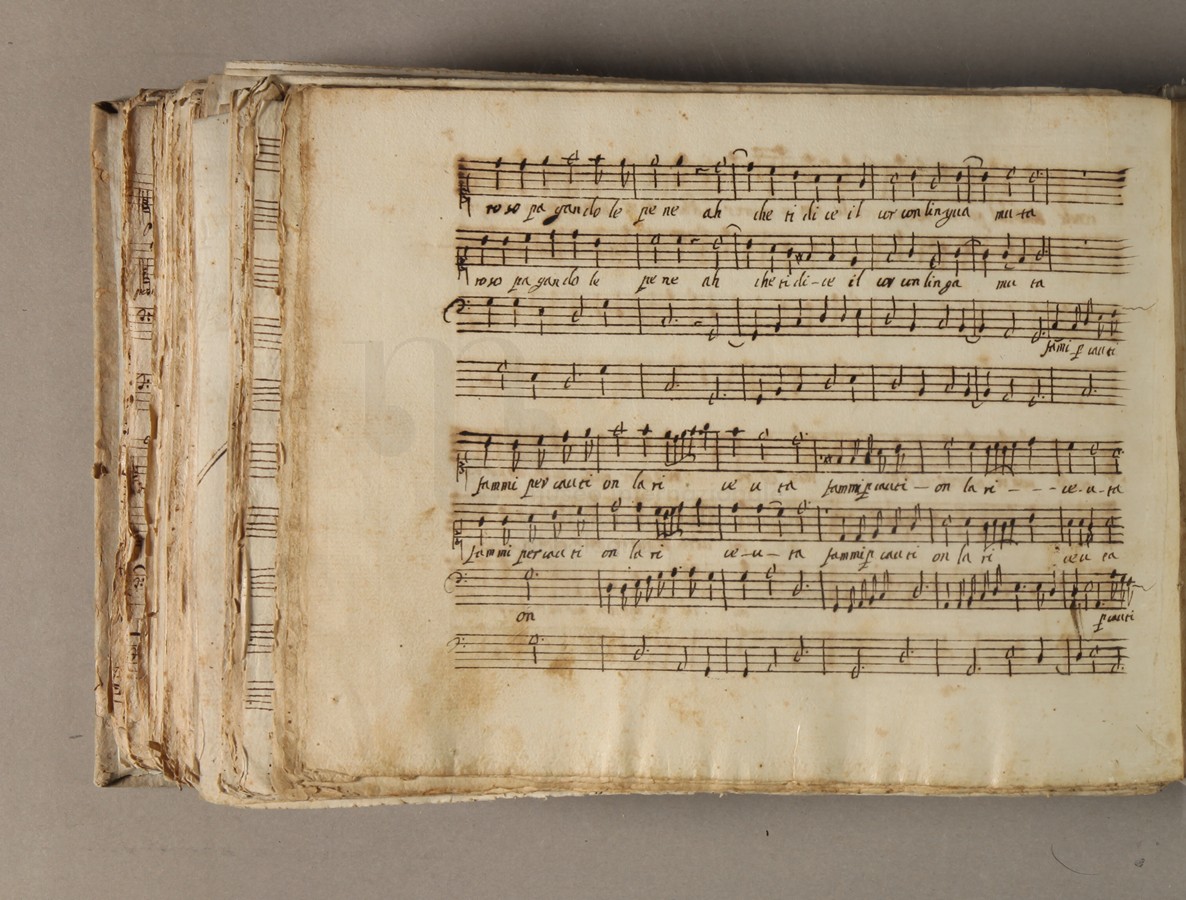 roso pa gando le pe ne ah che ti di ce il cor con lingua mu-ta
roso pa gan do le pe ne ah che ti di-ce il cor con linga mu ta
fami p cauti
fammi per cauti on la ri ce u ta fammi p cauti - on la ri - - - ce-u-ta
fammi per cau ti on la ri ce-u- ta fammi p cauti on la ri ceu ta
on p cauti